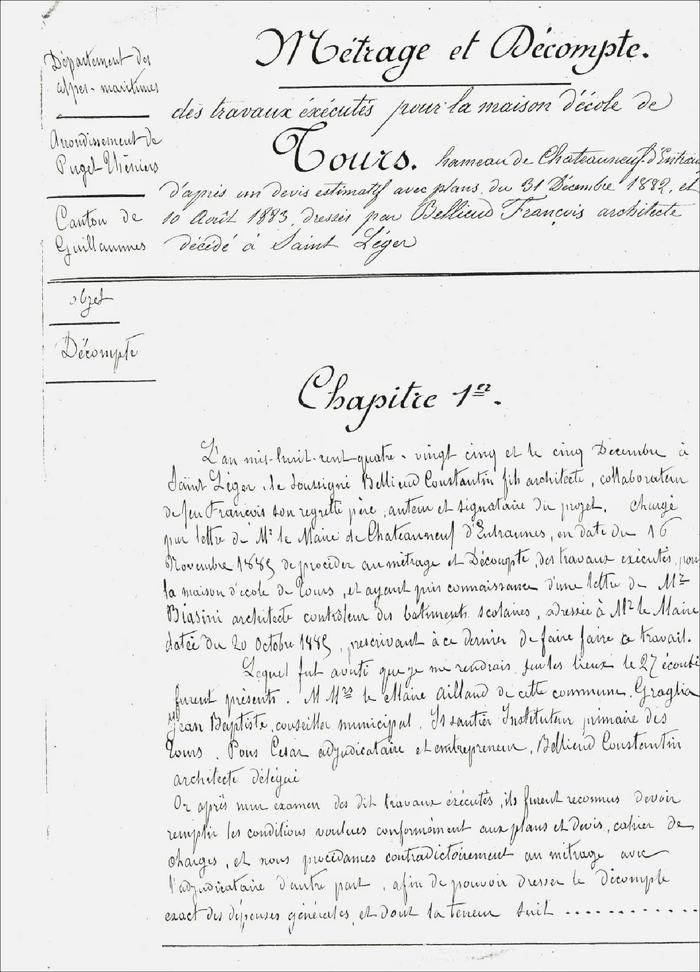 Métrage et Décompte.
Département des
Alpes-maritimes
des travaux éxécutés pour la maison d'école de
Arrondissement de
Puget-Théniers
Tours. hameau de Chateauneuf d'Entrau
d'après un devis estimatif avec plans, du 31 Décembre 1882, et
10 Août 1883, dressés par Bellieud François architecte
décédé à Saint Léger
Canton de
Guillaumes
objet
Décompte
Chapitre 1er.
L'an mis-huit-cent-quatre-vingt cinq et le cinq Décembre à
Saint Léger, le soussigné Bellieud Constantin fils architecte, collaborateur
de feu François son regretté père, auteur et signataire du projet. Chargé
par lettre de Mr le Maire de Chateauneuf d'Entraunes, en date du 16
Novembre 1885 de procéder au métrage et Décompte, des travaux exécutés, pour
la maison d'école de Tours, et ayant pris connaissance d'une lettre de Mr
Biasini architecte contrôleur des batiments scolaires, adressée à Mr le Maire
datée du 20 Octobre 1885, prescrivant à ce dernier de faire faire ce travail.
Lequel fut averti que je me rendrais sur les lieux le 27 écoulé
furent présents. M Mrs le Maire Ailland de cette commune, Graglia
Jean Baptiste, conseiller municipal, Issautier Instituteur primaire des
Tours. Pons Cesar adjudicataire et entrepreneur, Bellieud Constantin
architecte délégué
Or après mur examen des dit travaux éxécutés, ils furent reconnus devoir
remplir les conditions voulues conformément aux plans et Devis, cahier de
charges, et nous procédames contradictoirement au métrage avec
l'adjudicataire d'autre part, afin de pouvoir dresser le décompte
exact des dépenses générales, et dont la teneur suit ..........